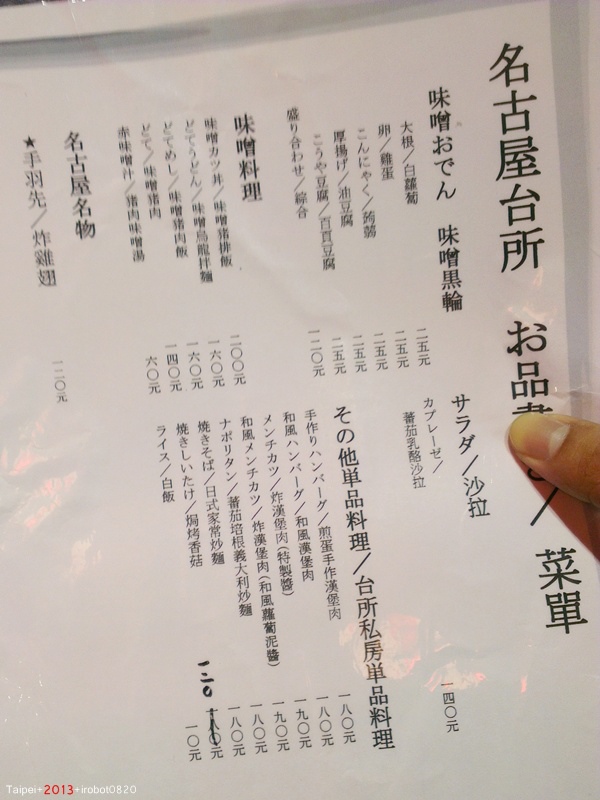 名古屋台所 お品書 ／菜單
味噌おでん 味噌黒輪
大根／白蘿蔔 二五元
卵／雞蛋 二五元
こんにゃく／蒟蒻 二五元
厚揚げ／油豆腐 二五元
こうや豆腐／百頁豆腐 二五元
盛り合わせ／綜合 一二〇元
味噌料理
味噌カツ丼／味噌豬排飯 二〇〇元
どてうどん／味噌烏龍拌麵 一六〇元
どてめし／味噌豬肉飯 一六〇元
どて／味噌豬肉 一四〇元
赤味噌汁／豬肉味噌湯 六〇元
名古屋名物
★手羽先／炸雞翅 一二〇元
サラダ／沙拉
カプレーゼ／
蕃茄乳酪沙拉 一四〇元
その他単品料理／台所私房単品料理
手作りハンバーグ／煎蛋手作漢堡肉 一八〇元
和風ハンバーグ／和風漢堡肉 一八〇元
メンチカツ／炸漢堡肉(特製醬) 一九〇元
和風メンチカツ／炸漢堡肉(和風蘿蔔泥醬) 一九〇元
ナポリタン／蕃茄培根義大利炒麵 一八〇元
焼きそば／日式家常炒麵 一八〇元
焼きしいたけ／焗烤香菇 一二〇 一八〇元
ライス／白飯 一〇元
Taipei+2013+irobot0820